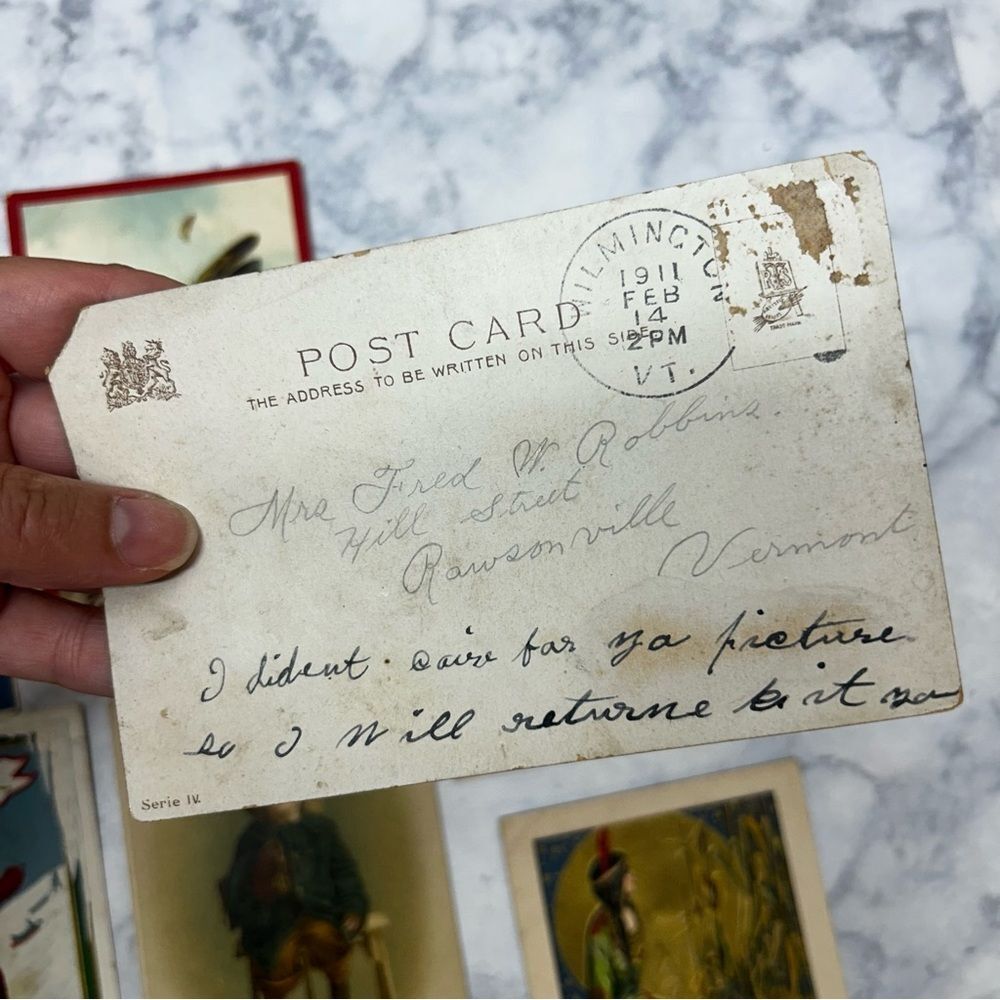 POST CARD
THE ADDRESS TO BE WRITTEN ON THIS SIDE
WILMINGTON
1911
FEB
14
2PM
VT.
TRADE MARK
Mrs Fred W. Robbins.
Hill Street
Rawsonville
Vermont.
I dident caire for yo picture
so I will returne it yo
Serie IV.